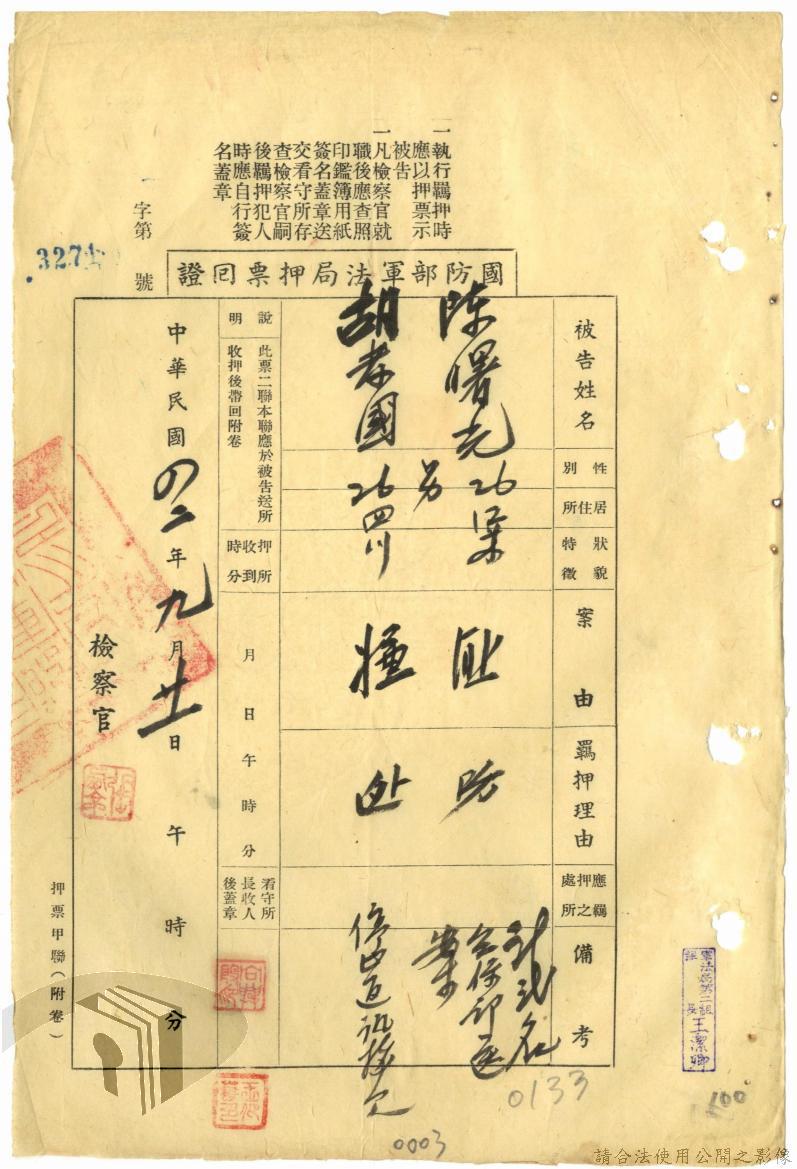 一執行羈押時
應以押票示
被告
一凡檢察官就
職後應查照
印鑑簿用紙
簽名蓋章送
交看守所存
查檢察官嗣
後羈押犯人
時應自行簽
名蓋章
字第 號
3274
國防部軍法局押票回證
被告姓名
性別
居住所
狀貌特徵
案由
羈押理由
應羈押之處所
備考
陳曙光 26
男
胡孝國 26 四川
計弍名
停止通訊接見
說明
此票二聯本聯應於被告送所
收押後帶回附卷
押所收到時分
月 日 午 時 分
看守所長收人後蓋章
中華民國四二年九月廿日 午 時 分
檢察官
押票甲聯(附卷)
軍法局第二組
組長 王潔卿
0133
100
0003
請合法使用公開之影像